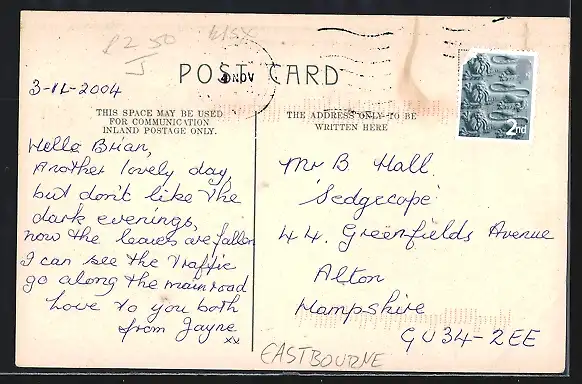 P2 50
J
615x
POST CARD
4 NOV
2nd
3-11-2004
THIS SPACE MAY BE USED
FOR COMMUNICATION
INLAND POSTAGE ONLY.
THE ADDRESS ONLY TO BE
WRITTEN HERE
Hello Brian,
Another lovely day,
but don't like the
dark evenings,
now the leaves are fallen
I can see the traffic
go along the main road
Love to you both
from Jayne
xx
Mr B Hall.
'Sedgecope'
44. Greenfields Avenue
Alton
Hampshire
GU34-2EE
EASTBOURNE